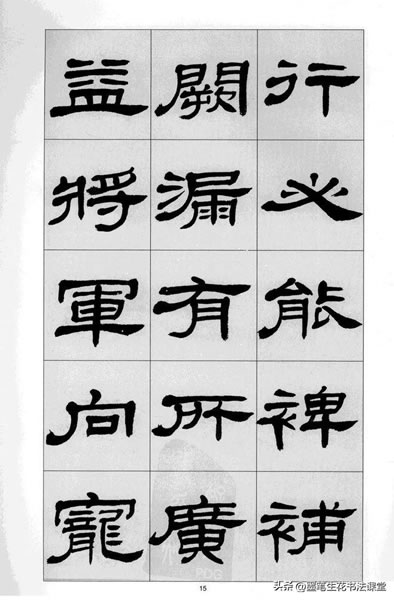 行必能裨補
闕漏有所廣
益將軍向寵
15
头条@墨笔生花书法课堂